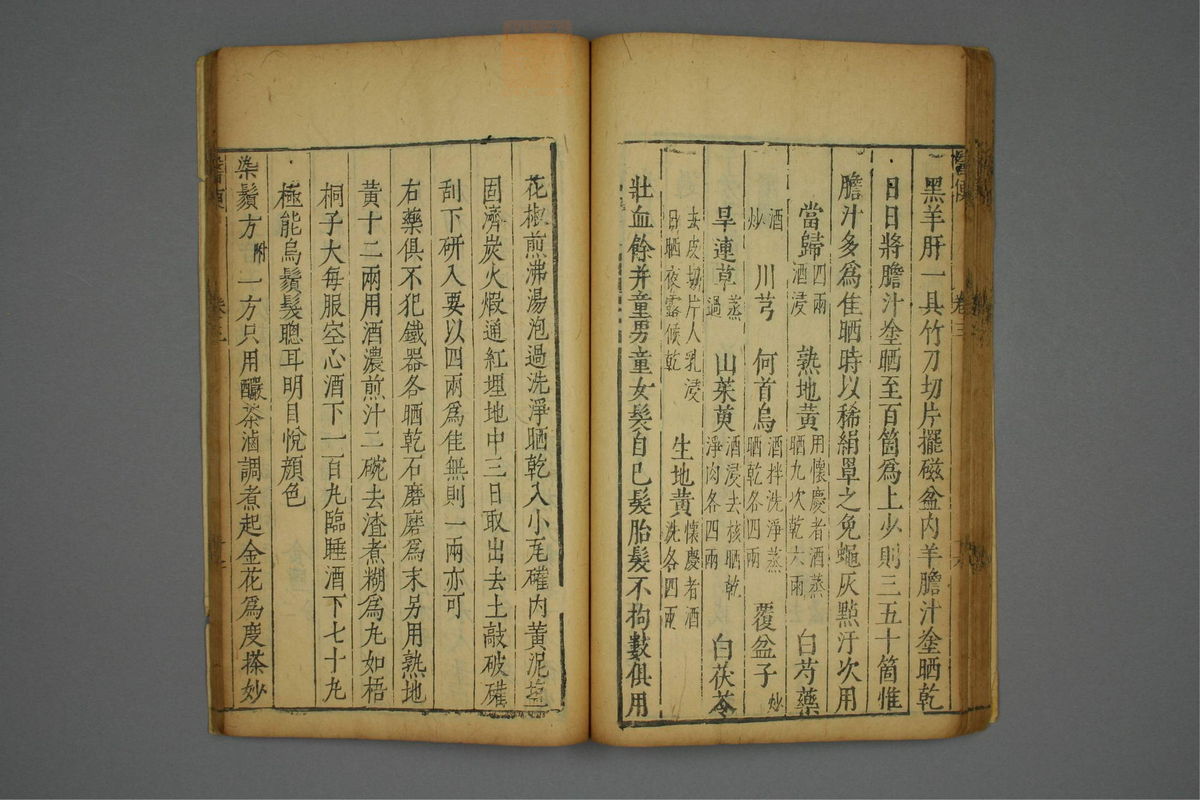 黑羊肝一具竹刀切片擺磁盆内羊膽汁塗晒乾
日日將膽汁塗晒至百箇爲上少則三五十箇惟
膽汁多爲佳晒時以稀絹罩之免蠅灰點汙次用
當歸四兩酒浸 熟地黄用懷慶者酒蒸晒九次乾六兩 白芍藥
酒炒 川芎 何首烏酒拌洗淨蒸晒乾各四兩 覆盆子炒
旱連草蒸過 山茱萸酒浸去核晒乾淨肉各四兩 白茯苓
去皮切片人乳浸日晒夜露候乾 生地黄懷慶者酒洗各四兩
壯血餘并童男童女髮自己髮胎髮不拘數俱用
花椒煎沸湯泡過洗淨晒乾入小瓦礶内黄泥
固濟炭火煅通紅埋地中三日取出去土敲破礶
刮下研入要以四兩爲佳無則一兩亦可
右藥俱不犯鐵器各晒乾石磨磨爲末另用熟地
黄十二兩用酒濃煎汁二碗去渣煮糊爲丸如梧
桐子大每服空心酒下一百丸臨睡酒下七十丸
極能烏鬚髮聰耳明目悅顔色
染鬚方附 一方只用釅茶滷調煮起金花爲度搽妙
卷三